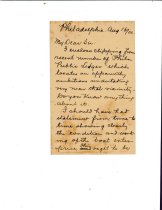 Philadelphia Aug 19/10
My Dear Sir.
I enclose clipping from
recent number of Phila
Public Ledger which
locates an apparently
ambitious undertaking
very near that vicinity
Do you know anything
about it.
I should have had
statement from time to
time showing clearly
the condition and work
ing of the boat enter
prise